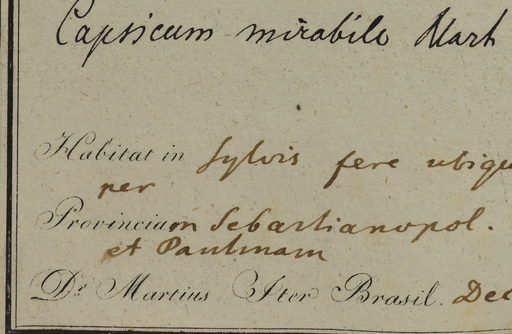 Capsicum mirabile Mart
Habitat in Sylvis fere ubiqu
per
Provinciam Sebastianopol.
et Paulinam
Dr Martius Iter Brasil. Dec